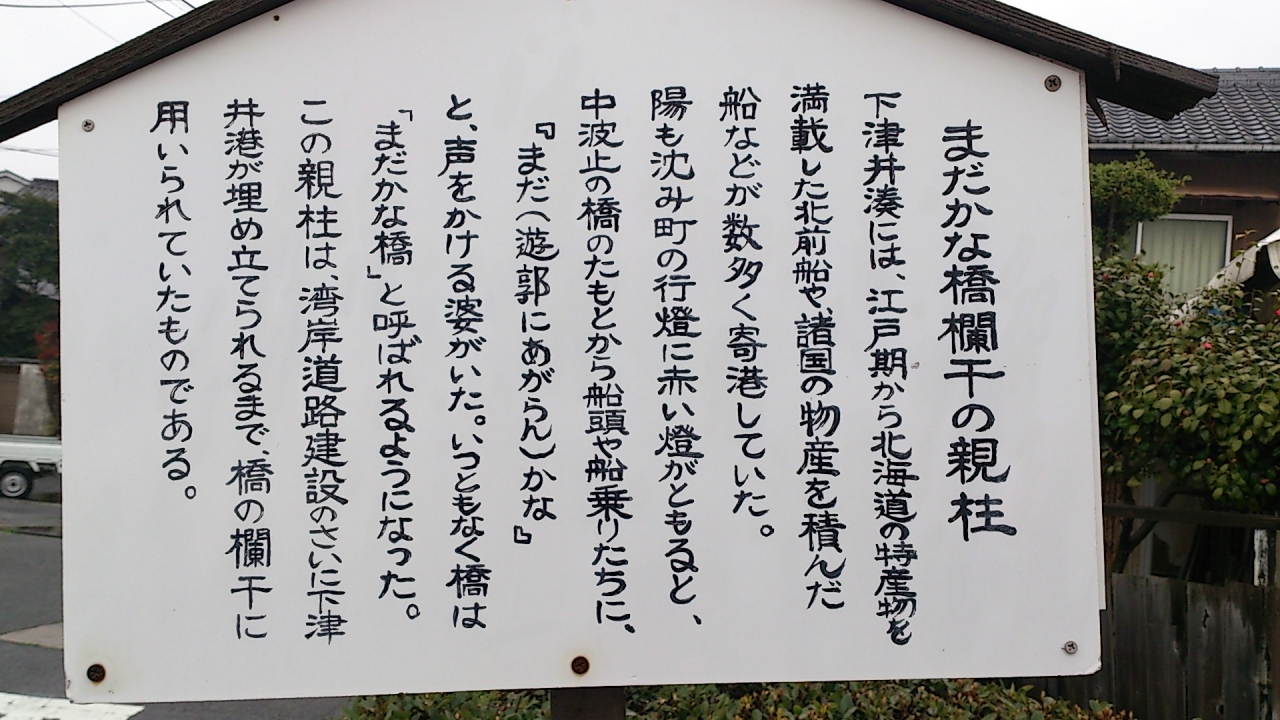 まだかな橋欄干の親柱
下津井湊には、江戸期から北海道の特産物を
満載した北前船や、諸国の物産を積んだ
船などが数多く寄港していた。
陽も沈み町の行燈に赤い燈がともると、
中波止の橋のたもとから船頭や船乗りたちに、
『まだ(遊郭にあがらん)かな』
と、声をかける婆がいた。いつともなく橋は
「まだかな橋」と呼ばれるようになった。
この親柱は、湾岸道路建設のさいに下津
井港が埋め立てられるまで、橋の欄干に
用いられていたものである。